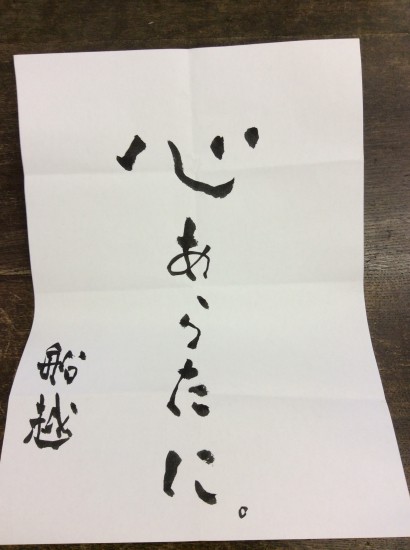 心あらたに。
船越